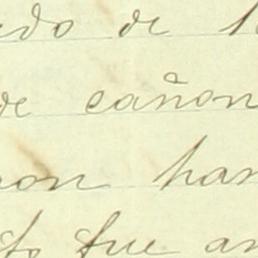 do de
de cañon
on han
to fue an